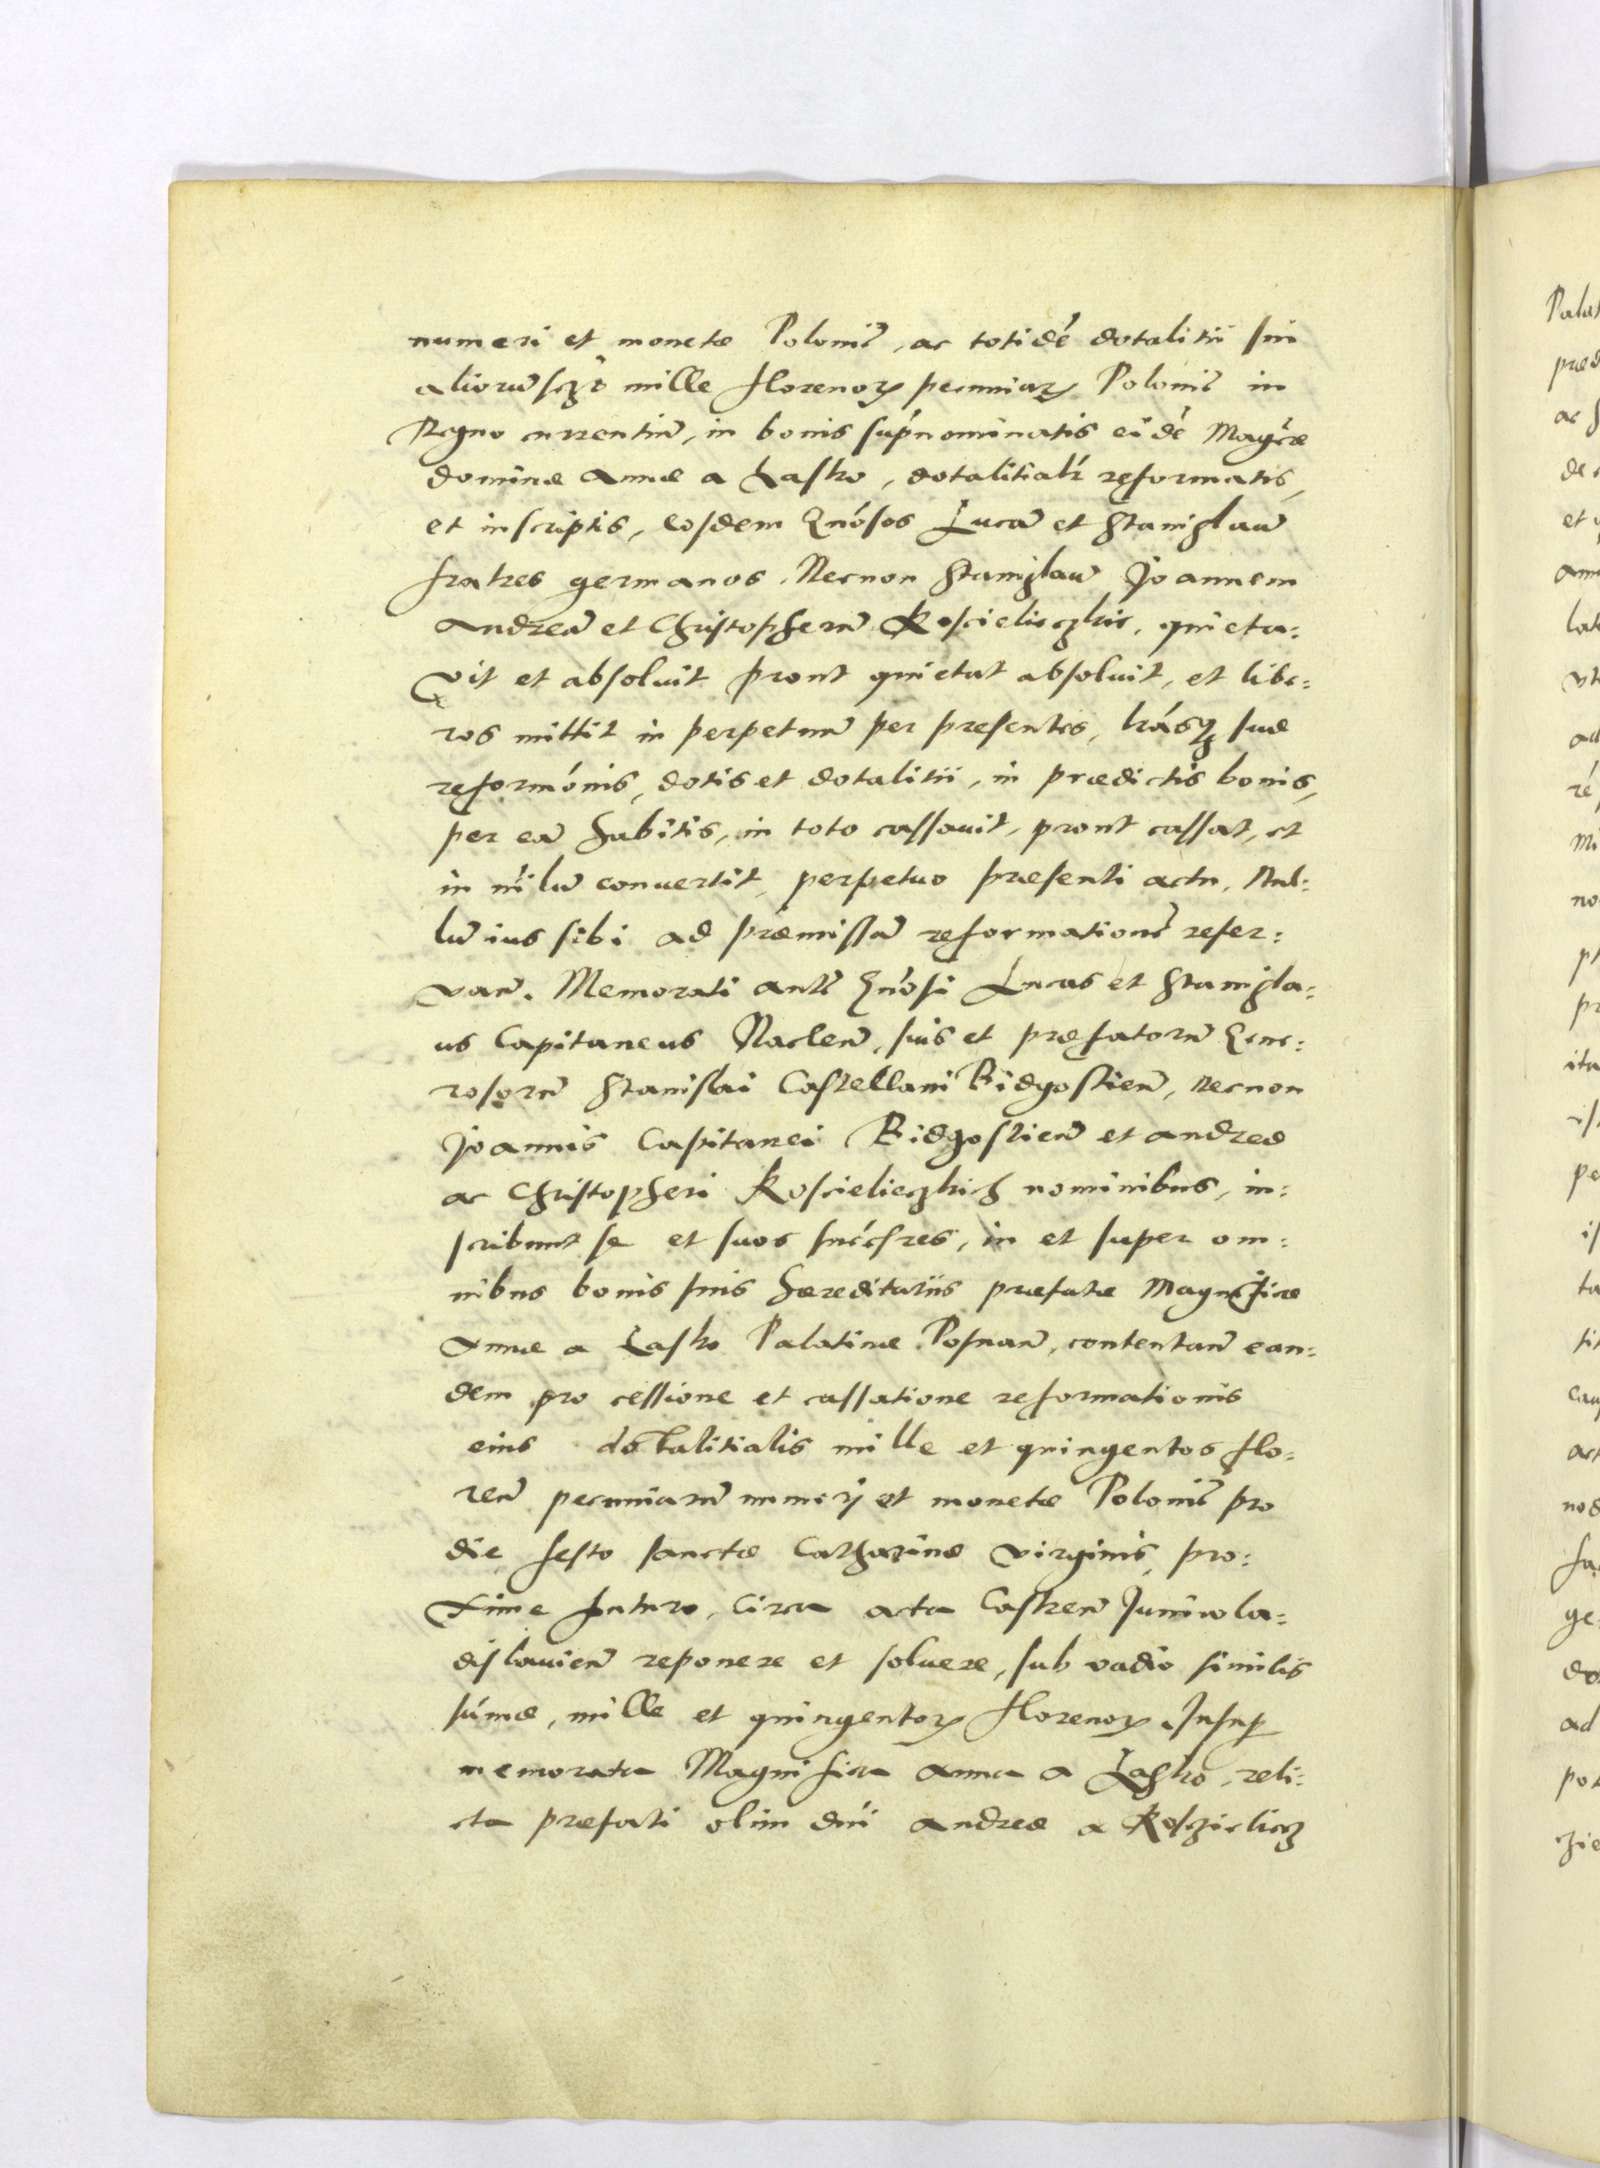 numeri et monetæ Polonic̃, ac totidẽ dotalitii sui
aliorum̃ sczt̃ mille florenoꝝ pecuniaꝝ Polonic̃ in
Regno currentium̃, in bonis sup̃nominatis eidẽ Magcæ
dominæ Annæ a Lasko, dotalitialr̃ reformatis,
et inscriptis, eosdem Gñosos Lucam̃ et Stanislaum̃
fratres germanos. Necnon Stanislaum̃ Joannem
Andream̃ et Christopherum̃ Koscielieczkie, quieta:
vit et absoluit prout quietat absoluit, et libe:
ros mittit in perpetuum̃ per presentes, lr̃asqꝫ suæ
reformõnis, dotis et dotalitii, in prædictis bonis,
per eam̃ habitis, in toto cassauit, prout cassat, et
in nĩlum̃ conuertit, perpetuo præsenti actu, Nul:
lum̃ ius sibi ad præmissam̃ reformationem̃ reser:
van̄. Memorati autem̃ Gñosi Lucas et Stanisla:
us Capitaneus Naclen̄, suis et præfatorum̃ Gene:
rosorum̃ Stanislai Castellani Bidgostien̄, necnon
Joannis Capitanei Bidgostien̄ et Andreæ
ac Christopheri Koscielieczkich nominibus, in:
scribunt se et suos succ̃sres, in et super om:
nibus bonis suis hæreditariis præfatæ Magnificæ
Annæ a Lasko Palatinæ Posnan̄, contentan̄ ean:
dem pro cessione et cassatione reformationis
eius dotalitialis mille et quingentos flo:
ren̄ pecuniarum̃ numeri et monetæ Polonic̃ pro
die festo sanctæ Catharinæ virginis, pro:
xime futuro, Circa acta Castren̄ Juniwla:
dislauien̄ reponere et soluere, sub vadio similis
sum̃æ, mille et quingentoꝝ florenoꝝ. Insuꝑ
memorata Magnifica Anna a Lasko, reli:
cta præfati olim dn̄i Andreæ a Kosczieliecz